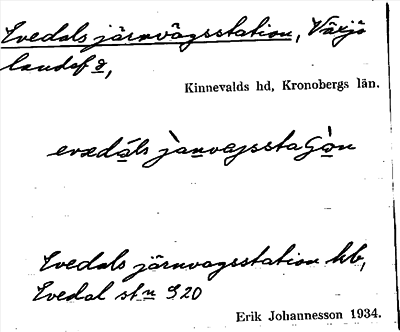 Evedals järnvägsstation, Växjö
landsf d,
Kinnevalds hd, Kronobergs län.
Evedals järnvägsstation kb,
Evedal stn S20
Erik Johannesson 1934.